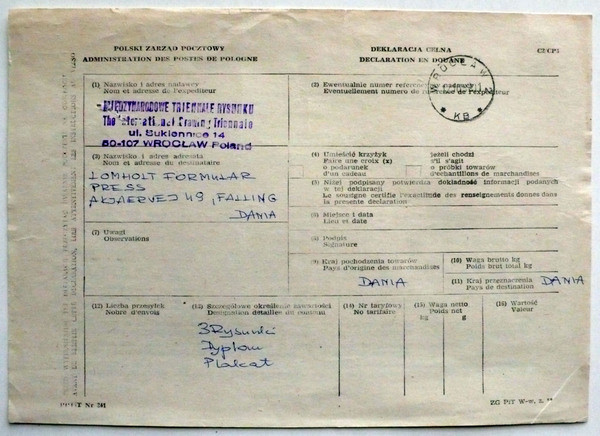 POLSKI ZARZĄD POCZTOWY
ADMINISTRATION DES POSTES DE POLOGNE
DEKLARACJA CELNA
DÉCLARATION EN DOUANE
C2/CP3
WROCŁAW
KB
(1) Nazwisko i adres nadawcy
Nom et adresse de l'expéditeur
MIĘDZYNARODOWE TRIENNALE RYSUNKU
The International Drawing Triennale
ul. Sukiennice 14
50-107 WROCŁAW Poland
(2) Ewentualnie numer referencyjny nadawcy
Eventuellement numéro de référence de l'expéditeur
(3) Nazwisko i adres adresata
Nom et adresse du destinataire
LOMHOLT FORMULAR
PRESS
AKJAERVEJ 49, FALLING
DANIA
(4) Umieścić krzyżyk jeżeli chodzi
Faire une croix (x) s'il s'agit
o podarunek o próbki towarów
d'un cadeau d'échantillons de marchandises
(5) Niżej podpisany potwierdza dokładność informacji podanych
w tej deklaracji
Le soussigné certifie l'exactitude des renseignements donnés dans
la présente déclaration
(6) Miejsce i data
Lieu et date
(7) Uwagi
Observations
(8) Podpis
Signature
(9) Kraj pochodzenia towarów
Pays d'origine des marchandises
DANIA
(10) Waga brutto kg
Poids brut total kg
(11) Kraj przeznaczenia
Pays de destination
DANIA
(12) Liczba przesyłek
Nobre d'envois
(13) Szczegółowe określenie zawartości
Désignation détaillée du contenu
3 Rysunki
Dyplom
Plakat
(14) Nr taryfowy
No tarifaire
(15) Waga netto
Poids net
kg g
(16) Wartość
Valeur
Nr 241
ZG PiT W-w, z.